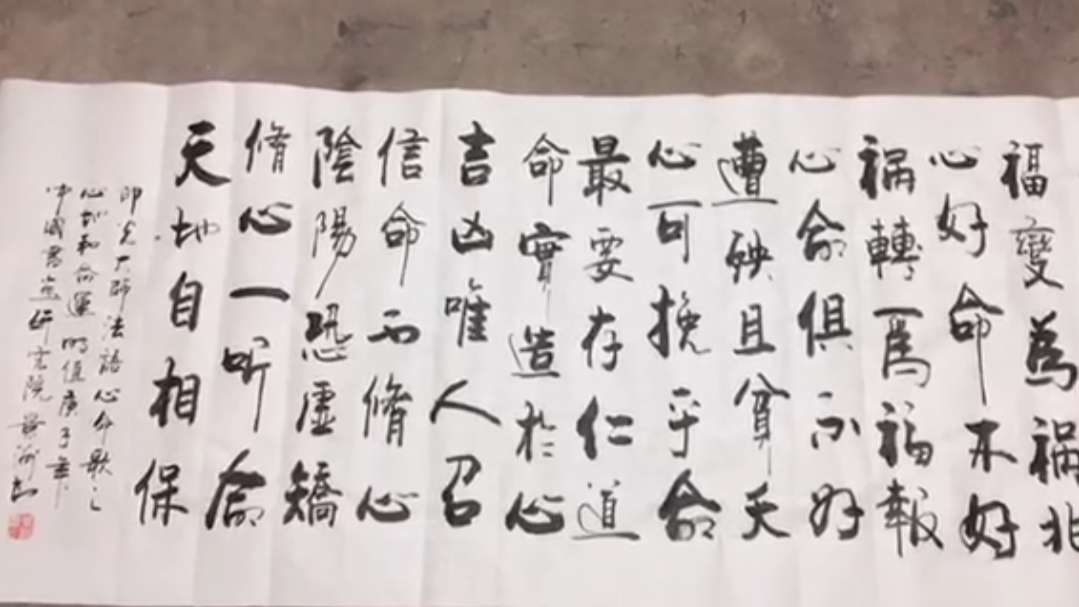 福變為禍兆
心好命不好
禍轉為福報
心命俱不好
遭殃且貧夭
心可挽乎命
最要存仁道
命實造於心
吉凶唯人召
信命不脩心
陰陽恐虛矯
脩心一听命
天地自相保
印光大師法語心命歌之
心如和命運时值庚子年
中國書画研究院